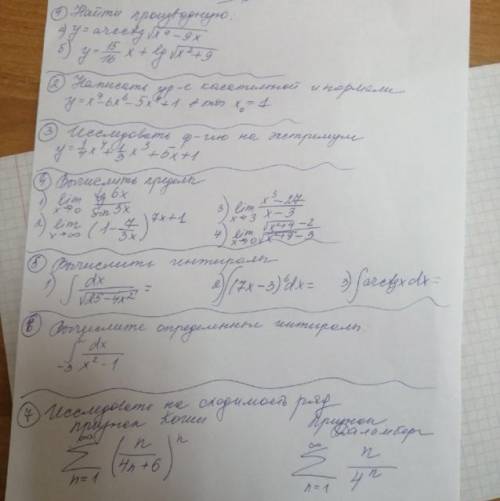 ① Найти производную:
а) y = arcctg √(x⁴ - 9x)
б) y = 15/16 x + lg √(x² + 9)
② Написать ур-е касательной и нормали
x₀ = 1
③ Исследовать ф-цию на экстремум
y = 1/4 x⁴ + 1/3 x³ + 5x + 1
④ Вычислить пределы
1) lim x→0 tg 6x / sin 3x 3) lim x→3 (x³ - 27)/(x - 3)
2) lim x→∞ (1 - 7/3x)^(7x+1) 4) lim x→0 (√(x²+4) - 2)/(√(x²+9) - 3)
⑤ Вычислить интегралы
1) ∫ dx/√(25 - 4x²) = 2) ∫(7x - 3)⁶dx = 3) ∫arcctgx dx =
⑥ Вычислите определенный интеграл
∫ -3 dx/(x² - 1)
⑦ Исследовать на сходимость ряд
признак Коши признак Даламбер
∞ Σ n=1 (n/(4n+6))ⁿ ∞ Σ n=1 n/4ⁿ